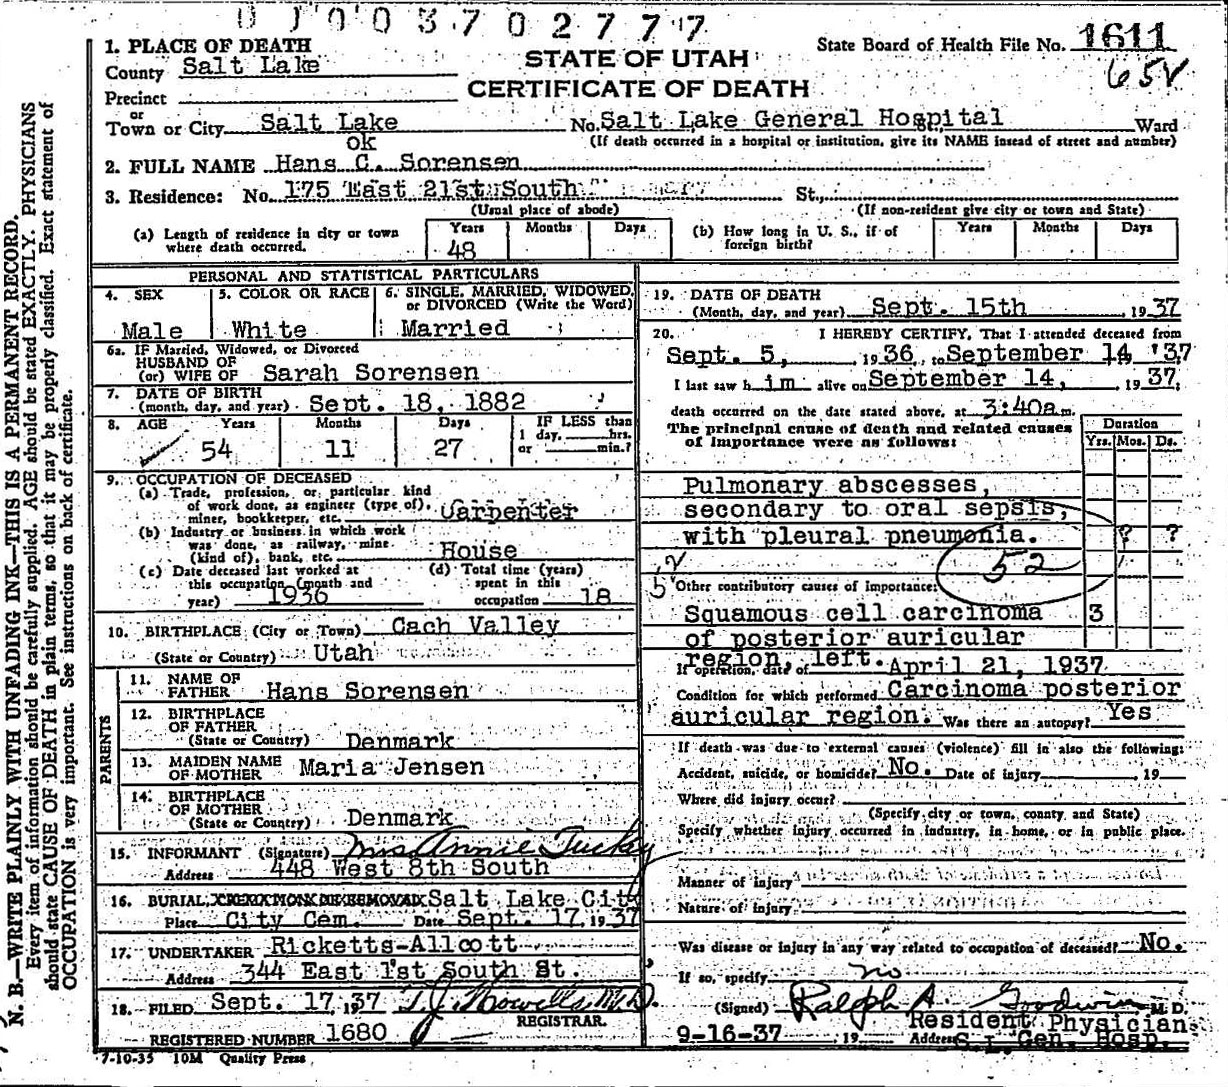 0 1 0 0 3 7 0 2 7 7 7
1. PLACE OF DEATH
County Salt Lake
Precinct
or
Town or City Salt Lake
ok
STATE OF UTAH
CERTIFICATE OF DEATH
State Board of Health File No. 1611
65V
No. Salt Lake General Hospital Ward
(If death occurred in a hospital or institution, give its NAME insead of street and number)
2. FULL NAME Hans C. Sorensen
3. Residence: No. 175 East 21st South St.,
(Usual place of abode) (If non-resident give city or town and State)
(a) Length of residence in city or town where death occurred. Years 48 Months Days
(b) How long in U. S., if of foreign birth? Years Months Days
PERSONAL AND STATISTICAL PARTICULARS
4. SEX Male
5. COLOR OR RACE White
6. SINGLE, MARRIED, WIDOWED, or DIVORCED (Write the Word) Married
6a. IF Married, Widowed, or Divorced
HUSBAND OF
(or) WIFE OF Sarah Sorensen
7. DATE OF BIRTH
(month, day, and year) Sept. 18, 1882
8. AGE Years 54 Months 11 Days 27 IF LESS than 1 day, hrs. or min.?
9. OCCUPATION OF DECEASED
(a) Trade, profession, or particular kind
of work done, as engineer (type of),
miner, bookkeeper, etc. Carpenter
(b) Industry or business in which work
was done, as railway, mine
(kind of), bank, etc. House
(c) Date deceased last worked at
this occupation (month and
year) 1936
(d) Total time (years)
spent in this
occupation 18
10. BIRTHPLACE (City or Town) Cach Valley
(State or Country) Utah
PARENTS
11. NAME OF
FATHER Hans Sorensen
12. BIRTHPLACE
OF FATHER
(State or Country) Denmark
13. MAIDEN NAME
OF MOTHER Maria Jensen
14. BIRTHPLACE
OF MOTHER
(State or Country) Denmark
15. INFORMANT (Signature) Mrs Annie Tuckey
Address 448 West 8th South
16. BURIAL, CREMATION OR REMOVAL Salt Lake City
Place City Cem. Date Sept. 17, 1937
17. UNDERTAKER Ricketts-Allcott
Address 344 East 1st South St.
18. FILED Sept. 17, 37 T. J. Howells, M.D.
REGISTRAR.
REGISTERED NUMBER 1680
7-10-35 10M Quality Press
19. DATE OF DEATH
(Month, day, and year) Sept. 15th, 1937
20. I HEREBY CERTIFY, That I attended deceased from
Sept. 5, 1936, to September 14, '37
I last saw h im alive on September 14, 1937;
death occurred on the date stated above, at 3:40a m.
The principal cause of death and related causes
of importance were as follows:
Duration
Yrs. Mos. Ds.
Pulmonary abscesses,
secondary to oral sepsis,
with pleural pneumonia. ? ?
52
52
Other contributory causes of importance:
Squamous cell carcinoma 3
of posterior auricular
region, left.
If operation, date of April 21, 1937
Condition for which performed Carcinoma posterior
auricular region. Was there an autopsy? Yes
If death was due to external causes (violence) fill in also the following:
Accident, suicide, or homicide? No. Date of injury , 19
Where did injury occur?
(Specify city or town, county and State)
Specify whether injury occurred in industry, in home, or in public place.
Manner of injury
Nature of injury
Was disease or injury in any way related to occupation of deceased? No.
If so, specify no
(Signed) Ralph A. Goodwin M. D.
Resident Physician
9-16-37 , 19 Address S.L. Gen. Hosp.
N. B.—WRITE PLAINLY WITH UNFADING INK—THIS IS A PERMANENT RECORD.
Every item of information should be carefully supplied. AGE should be stated EXACTLY. PHYSICIANS
should state CAUSE OF DEATH in plain terms, so that it may be properly classified. Exact statement of
OCCUPATION is very important. See instructions on back of certificate.